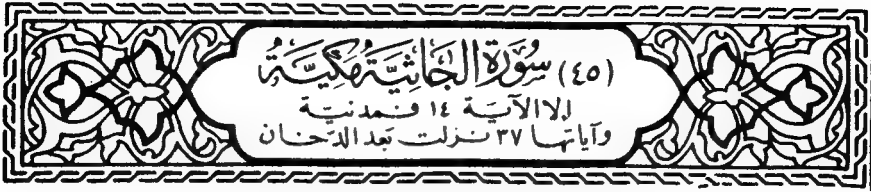 (٤٥) سُورَةُ الجَاثِيَةِ مَكِّيَّة
إلا الآيَة ١٤ فمدنيّة
وآياتها ٣٧ نزلت بَعد الدّخان